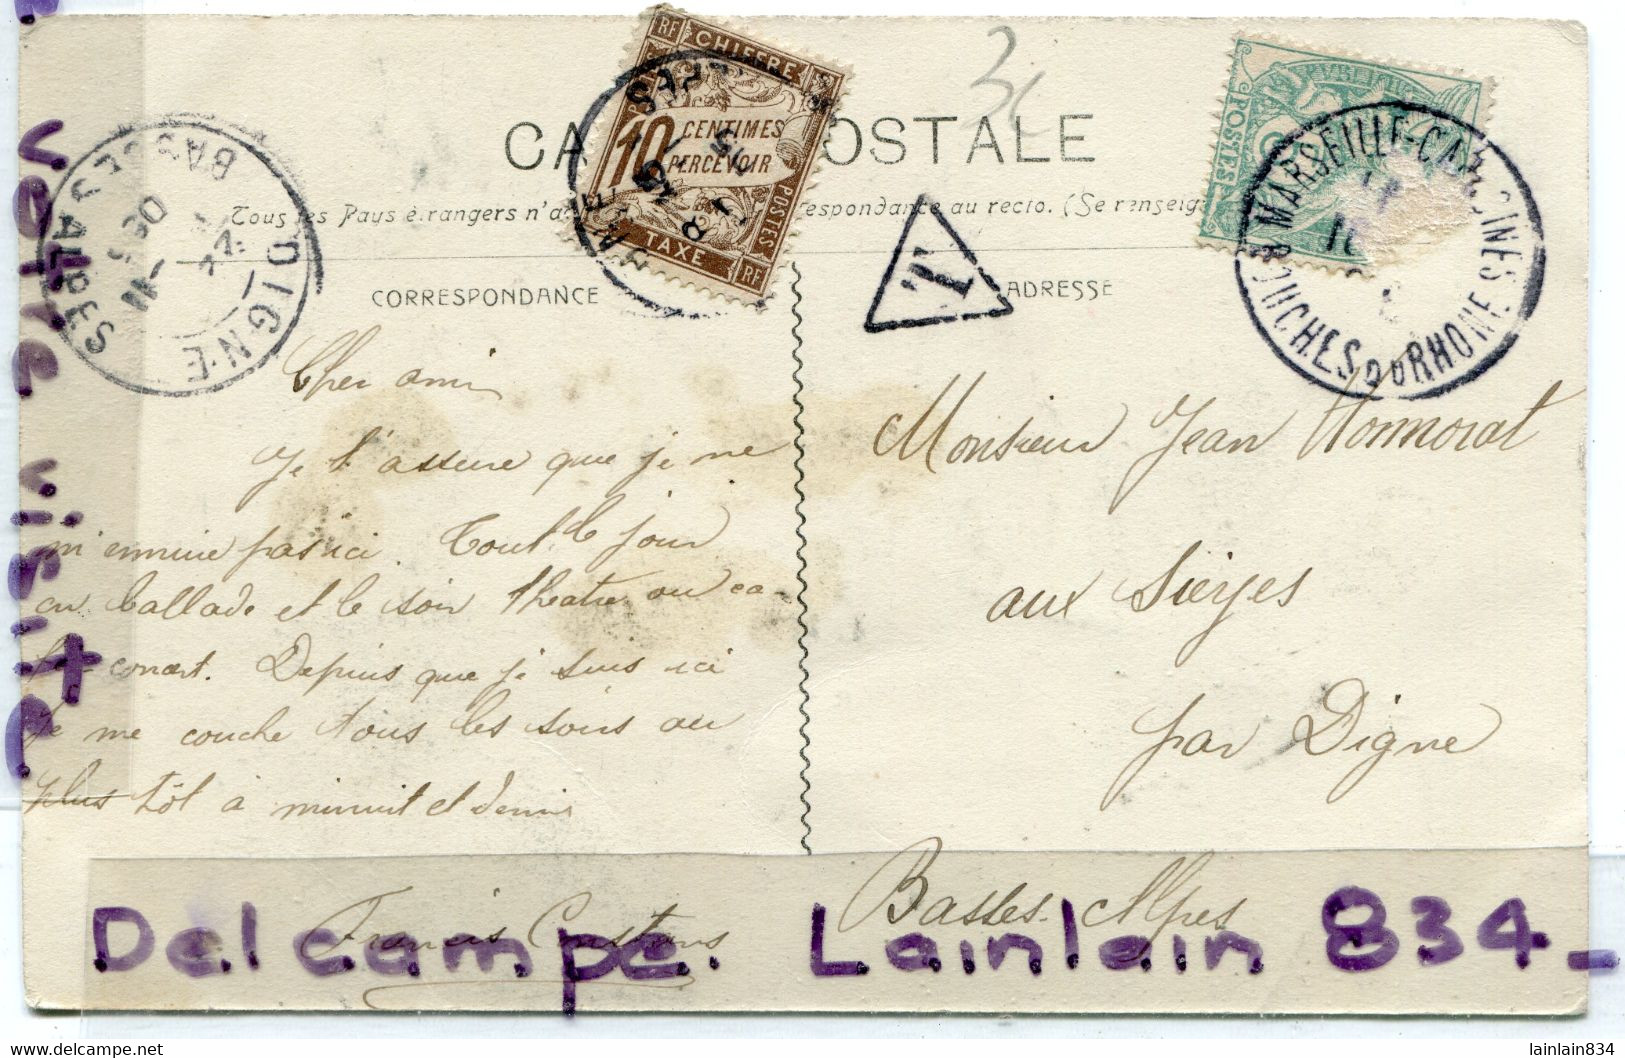 CARTE POSTALE
Tous les Pays étrangers n'a respondance au recto. (Se renseig
CORRESPONDANCE
ADRESSE
RF CHIFFRE
10 CENTIMES
PERCEVOIR
POSTES
TAXE RF
T
POSTES
MARSEILLE-CAPUCINES
BOUCHES DU RHONE
DIGNE
BASSES ALPES
Cher ami
Je t'assure que je ne
m'ennuie pas ici. Tout le jour
en ballade et le soir théatre ou ca-
fé-concert. Depuis que je suis ici
Je me couche tous les soirs au
plus tôt à minuit et demi
Francis
Monsieur Jean Honnorat
aux Sieyes
par Digne
Basses-Alpes
votre visite
Delcampe. Lainlain 834_
© www.delcampe.net
lainlain834